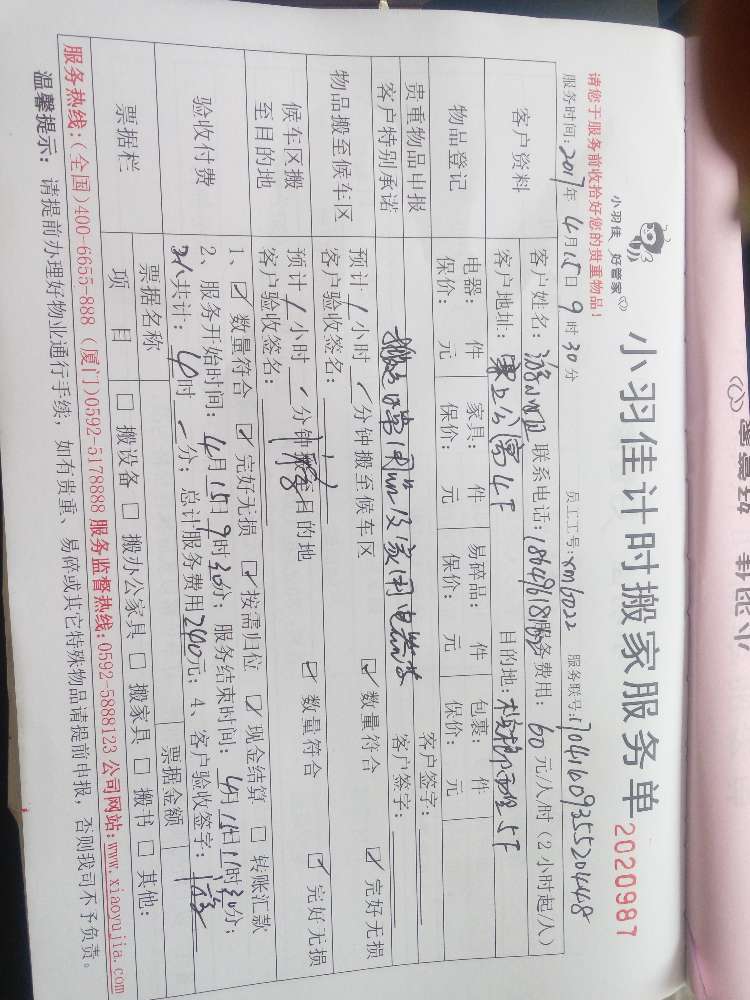 小羽佳 好管家
小羽佳计时搬家服务单 2020987
请您于服务前收拾好您的贵重物品!
服务时间:2017年4月15日9时30分 员工工号:xm6022 服务联号:
客户资料 客户姓名: 联系电话: 服务费用:60元/人/时(2小时起/人)
客户地址: 公寓4F 目的地: 5F
物品登记 电器: 件 家具: 件 易碎品: 件 包裹: 件
保价: 元 保价: 元 保价: 元 保价: 元
贵重物品申报 客户签字:
客户特别承诺 客户签字:
物品搬至候车区 预计1小时 分钟搬至候车区 ☑ 数量符合 ☑ 完好无损
客户验收签名:
候车区搬至目的地 预计1小时 分钟搬至目的地 ☑ 数量符合 ☑ 完好无损
客户验收签名:
验收付费 1、☑ 数量符合 ☑ 完好无损 ☑ 按需归位 ☑ 现金结算 ☐ 转账汇款
2、服务开始时间:4月15日9时30分;服务结束时间:4月15日11时30分;
共计:4时 分;总计服务费用240元;4、客户验收签字:
票据栏 票据名称 票据金额
项目 ☐ 搬设备 ☐ 搬办公家具 ☐ 搬家具 ☐ 搬书 ☐ 其他:
服务热线:(全国)400-6655-888 (厦门)0592-5178888 服务监督热线:0592-5888123 公司网站:www.xiaoyujia.com
温馨提示:请提前办理好物业通行手续,如有贵重、易碎或其它特殊物品请提前申报,否则我司不予负责。